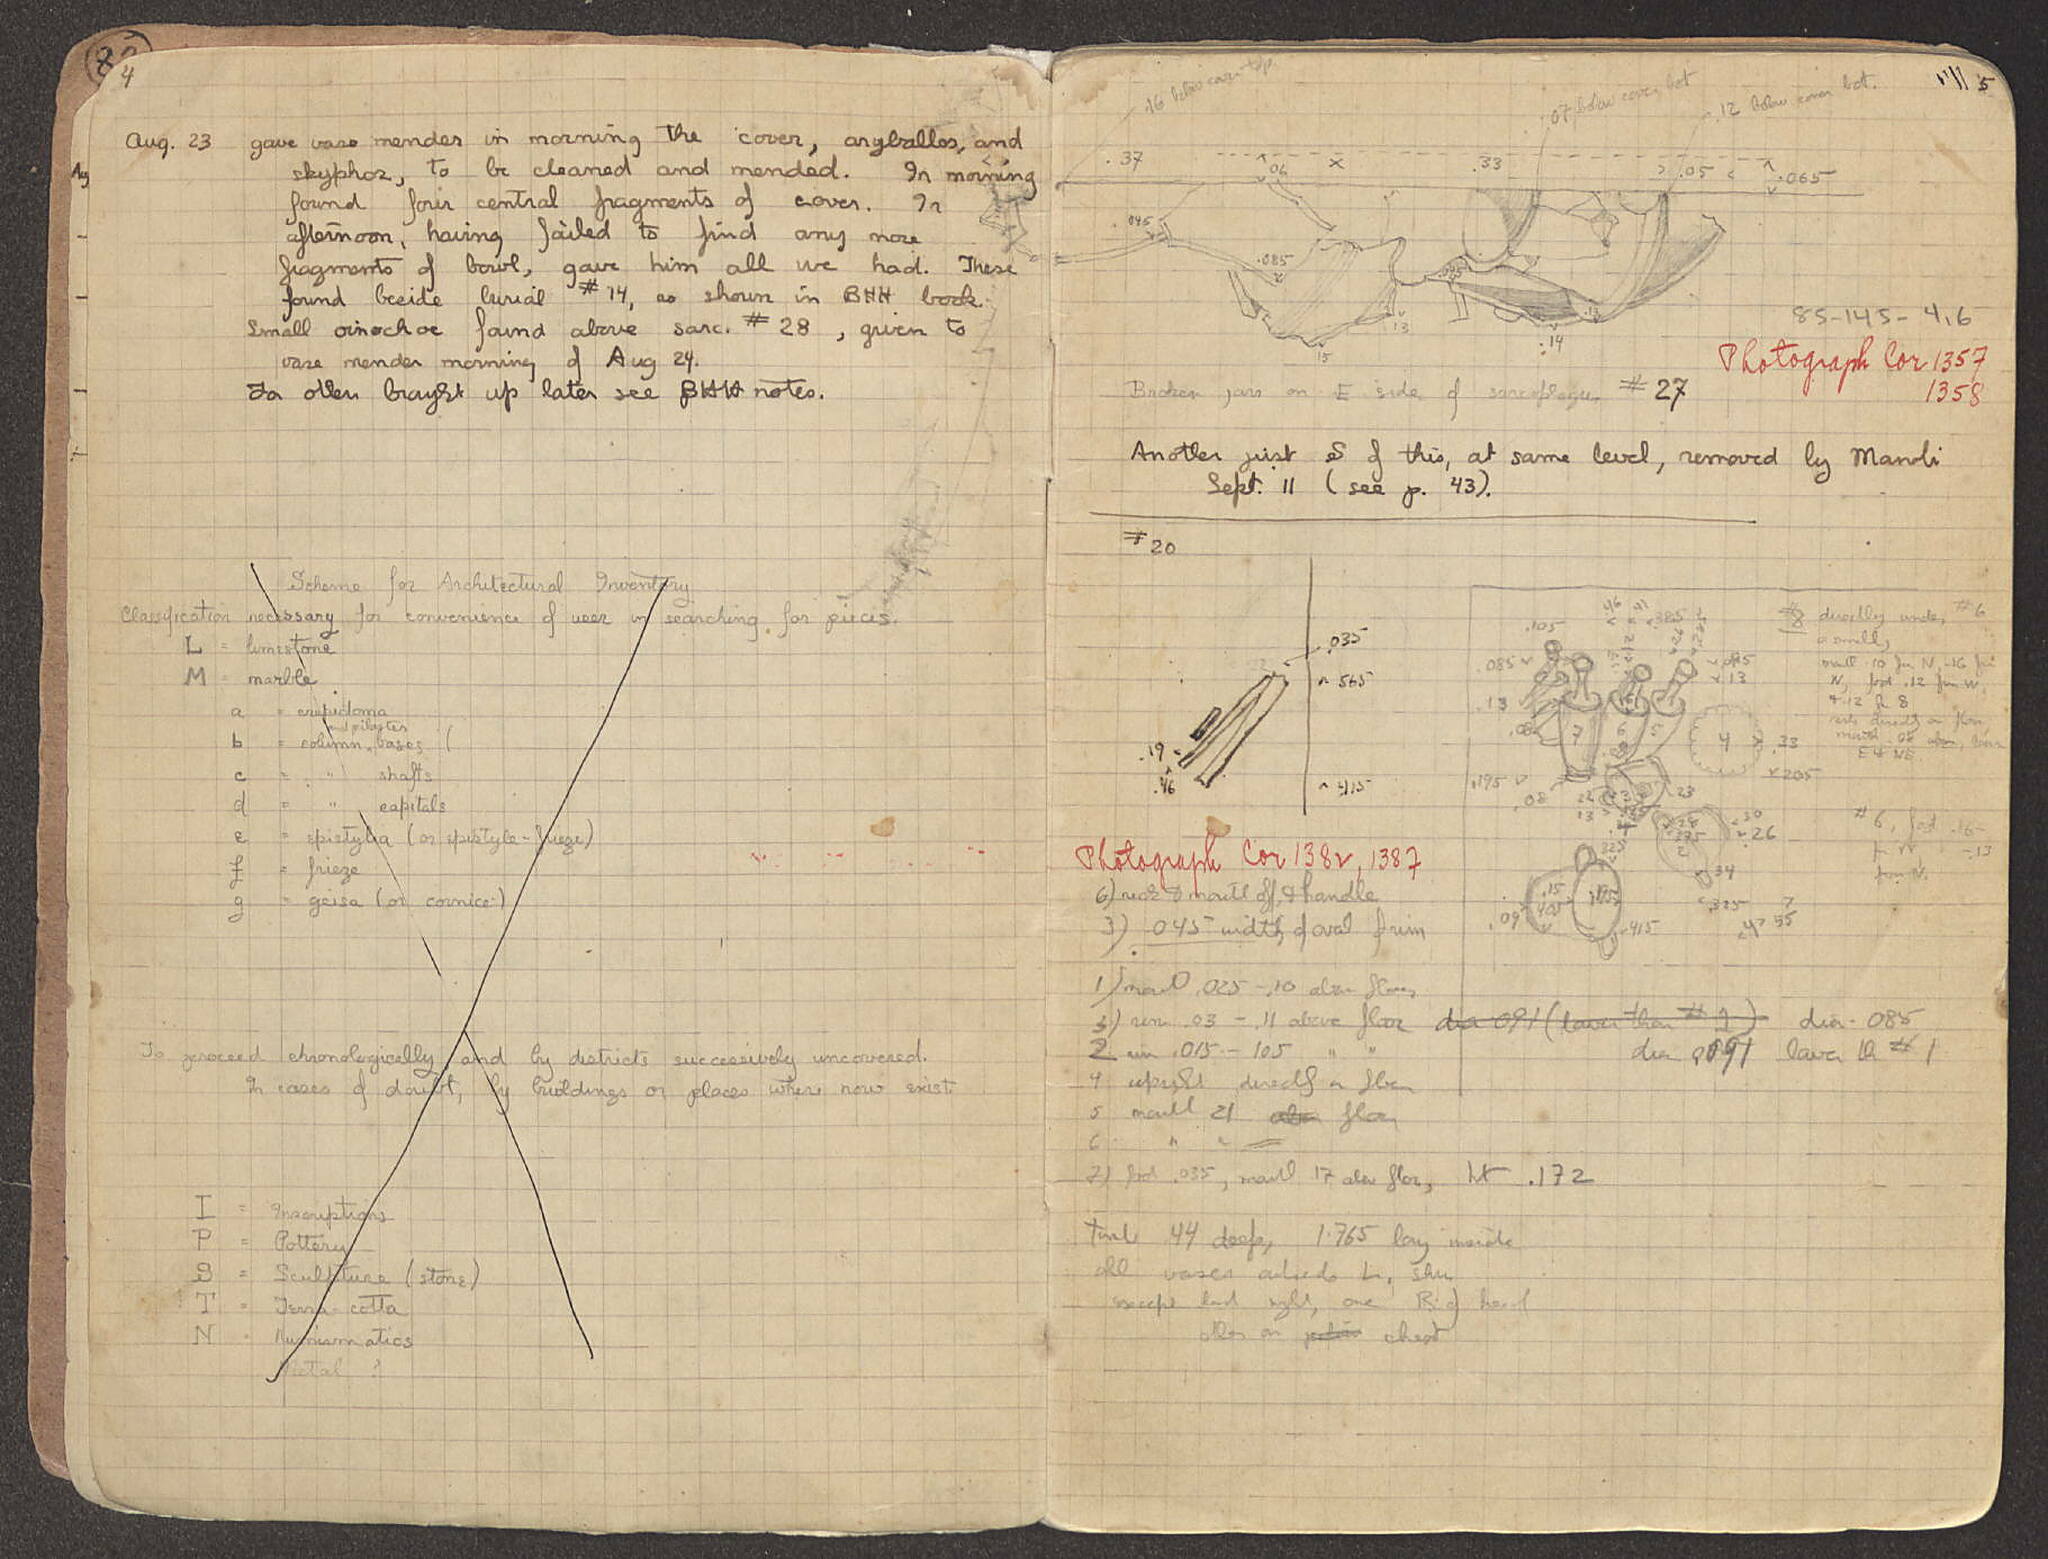 4
Aug. 23 gave vase mender in morning the cover, aryballos, and
skyphos, to be cleaned and mended. In morning
found four central fragments of cover. In
afternoon, having failed to find any more
fragments of bowl, gave him all we had. These
found beside burial #14, as shown in BHH book.
Small oinochoe found above sarc. #28, given to
vase mender morning of Aug 24.
For others brought up later see BHH notes.
Scheme for Architectural Inventory
Classification necessary for convenience of user in searching for pieces.
L = limestone
M = marble
a = crepidoma
and pilaster
b = column bases (
c = " shafts
d = " capitals
e = epistylia (or epistyle-frieze)
f = frieze
g = geisa (or cornice)
To proceed chronologically and by districts successively uncovered.
In cases of doubt, by buildings or places where now exist.
I = Inscriptions
P = Pottery
S = Sculpture (stone)
T = Terra-cotta
N = Numismatics
Metal ?
5
.16 below cover top
.07 below cover bot
.12 below cover bot.
.37
.06
x
.33
.05
.065
.045
.085
13
15
.14
85-145-4,6
Photograph Cor 1357
1358
Broken jars on E side of sarcophagus #27
Another just S of this, at same level, removed by Manoli
Sept. 11 (see p. 43).
#20
.035
565
.19
.46
415
.105
.385
.085
.13
13
7
6
5
4
.33
.205
.195
.08
23
30
26
2
34
.325
55
.15
.09
415
#8 directly under #6
#6, foot .16-
from N.
Photograph Cor 1382, 1387
6) neck & mouth off, & handle
3) .045 width of oval rim
1) mouth .025 - .10 above floor
3) rim .03 - .11 above floor dia 091 (lower than #1) dia - 085
2 rim .015 - 105 " " dia .091 lower th #1
4 upright directly on floor
5 mouth 21 above floor
6 " "
7) foot .035, mouth 17 above floor, ht .172
44 deep, 1.765 long inside
all vases outside
except last night, one Rt of head
other on chest